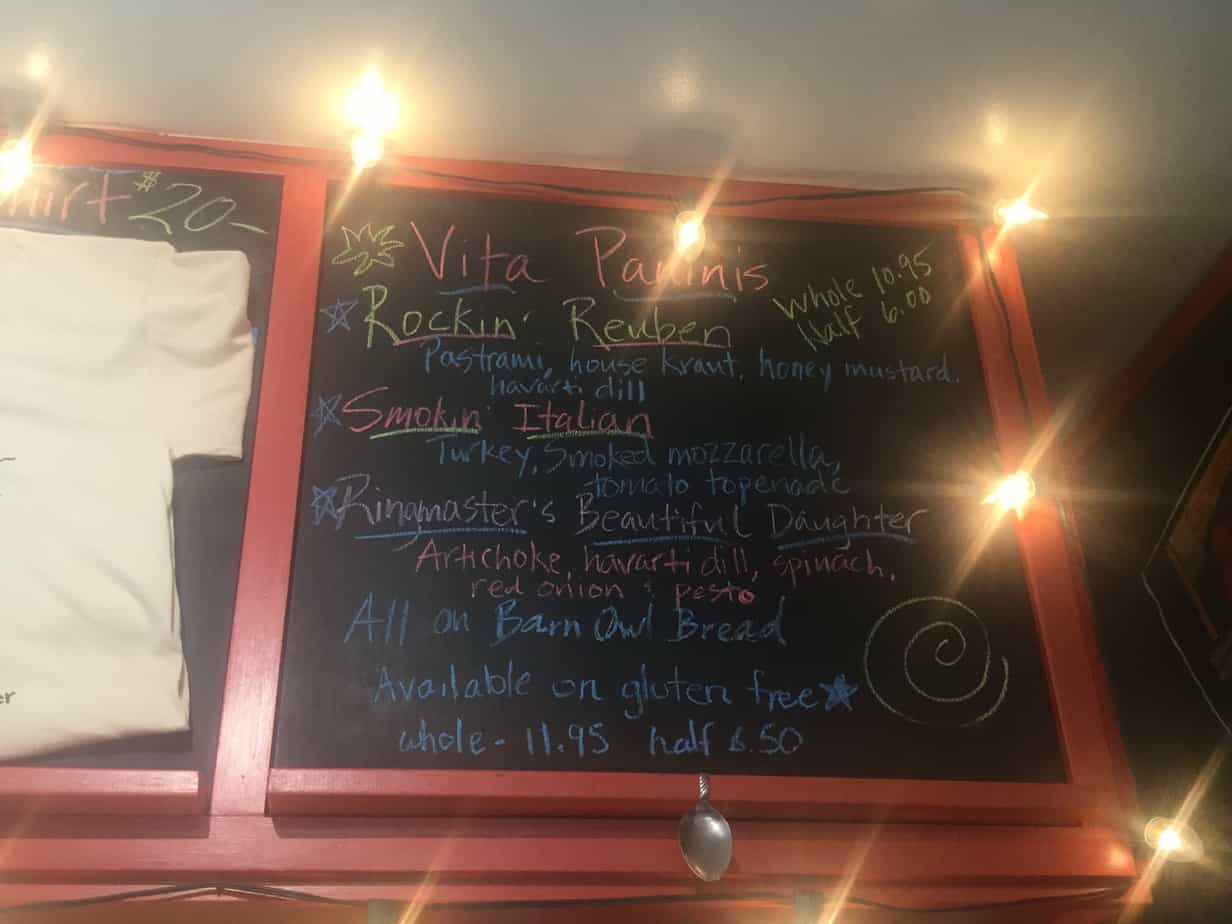 hirt $20-
Vita Paninis
Whole 10.95
Half 6.00
Rockin' Reuben
Pastrami, house kraut, honey mustard.
havarti dill
Smokin' Italian
Turkey, Smoked mozzarella,
tomato topenade
Ringmaster's Beautiful Daughter
Artichoke, havarti dill, spinach,
red onion & pesto
All on Barn Owl Bread
Available on gluten free
whole - 11.95 half 6.50
er